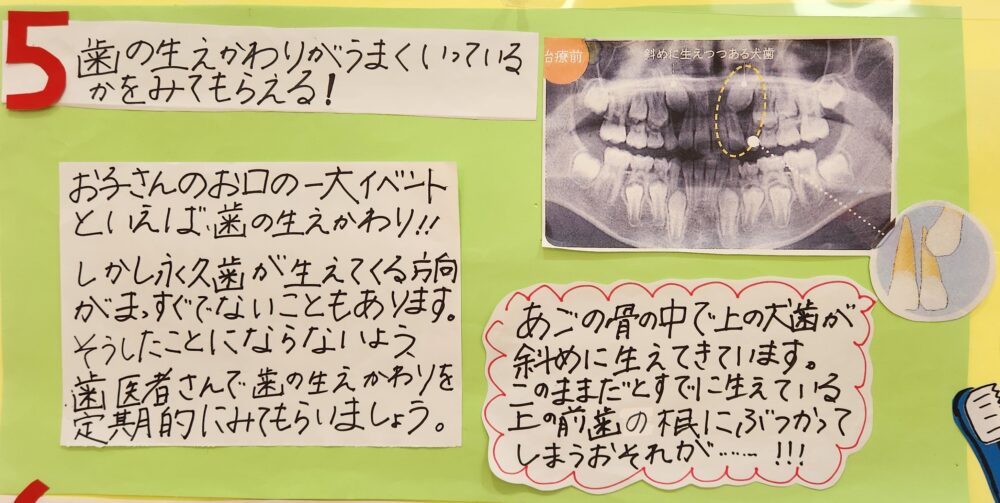 5
歯の生えかわりがうまくいっている
かをみてもらえる!
治療前
斜めに生えつつある犬歯
お子さんのお口の一大イベント
といえば、歯の生えかわり!!
しかし永久歯が生えてくる方向
がまっすぐでないこともあります。
そうしたことにならないよう、
歯医者さんで歯の生えかわりを
定期的にみてもらいましょう。
あごの骨の中で上の犬歯が
斜めに生えてきています。
このままだとすでに生えている
上の前歯の根にぶつかって
しまうおそれが……… !!!